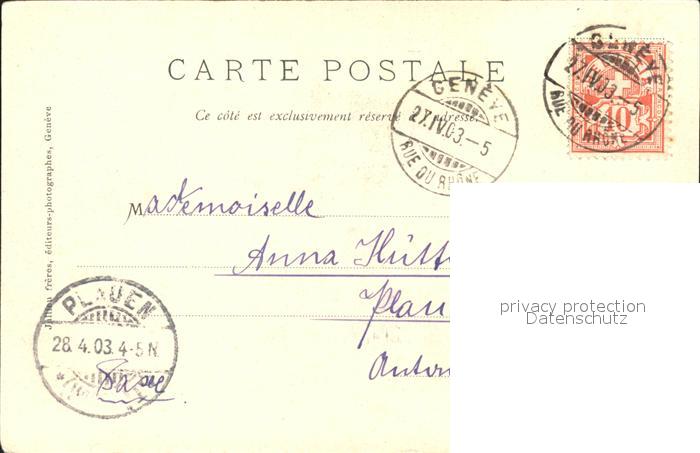 CARTE POSTALE
Ce côté est exclusivement réservé à l'adresse.
GENÈVE
27.IV.03.-5
RUE DU RHÔNE
GENÈVE
27.IV.03.-5
RUE DU RHÔNE
10
Mademoiselle
Anna Hütt
Plau
Anton
PLAUEN
28.4.03.4-5N.
Jullien frères, éditeurs-photographes, Genève
privacy protection
Datenschutz